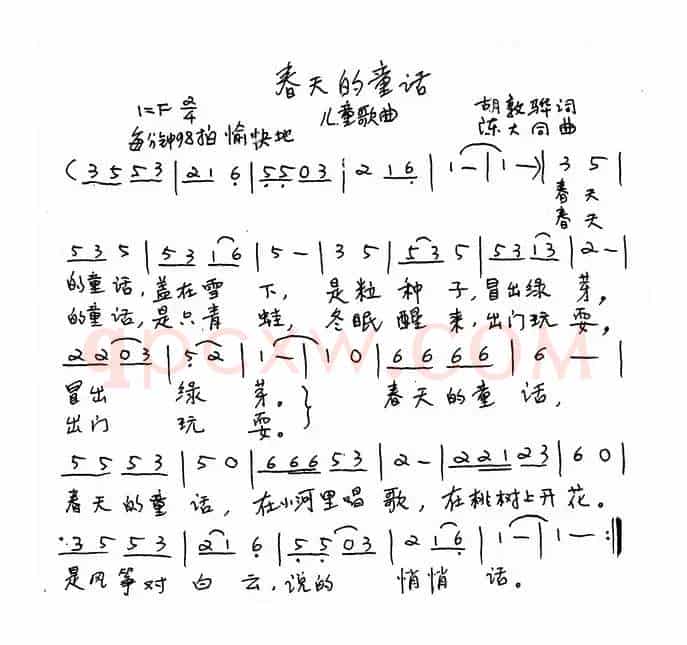 春天的童话
1=F 2/4
儿童歌曲
胡敦骅词
每分钟98拍 愉快地
陈大同曲
(3 5 5 3 | 2 1 6 | 5 5 0 3 | 2 1 6 | 1 — | 1 — ) | 3 5 |
春天
春天
5 3 5 | 5 3 1 6 | 5 — | 3 5 | 5 3 5 | 5 3 1 3 | 2 — |
的童话,盖在雪下,是粒种子,冒出绿芽,
的童话,是只青蛙,冬眠醒来,出门玩耍,
2 2 0 3 | 5 2 | 1 — | 1 0 | 6 6 6 6 | 6 — |
冒出绿芽。 春天的童话,
出门玩耍。
5 5 5 3 | 5 0 | 6 6 6 5 3 | 2 — | 2 2 1 2 3 | 6 0 |
春天的童话,在小河里唱歌,在桃树上开花。
3 5 5 3 | 2 1 6 | 5 5 0 3 | 2 1 6 | 1 — | 1 — :‖
是风筝对白云,说的悄悄话。
qpcxw.com